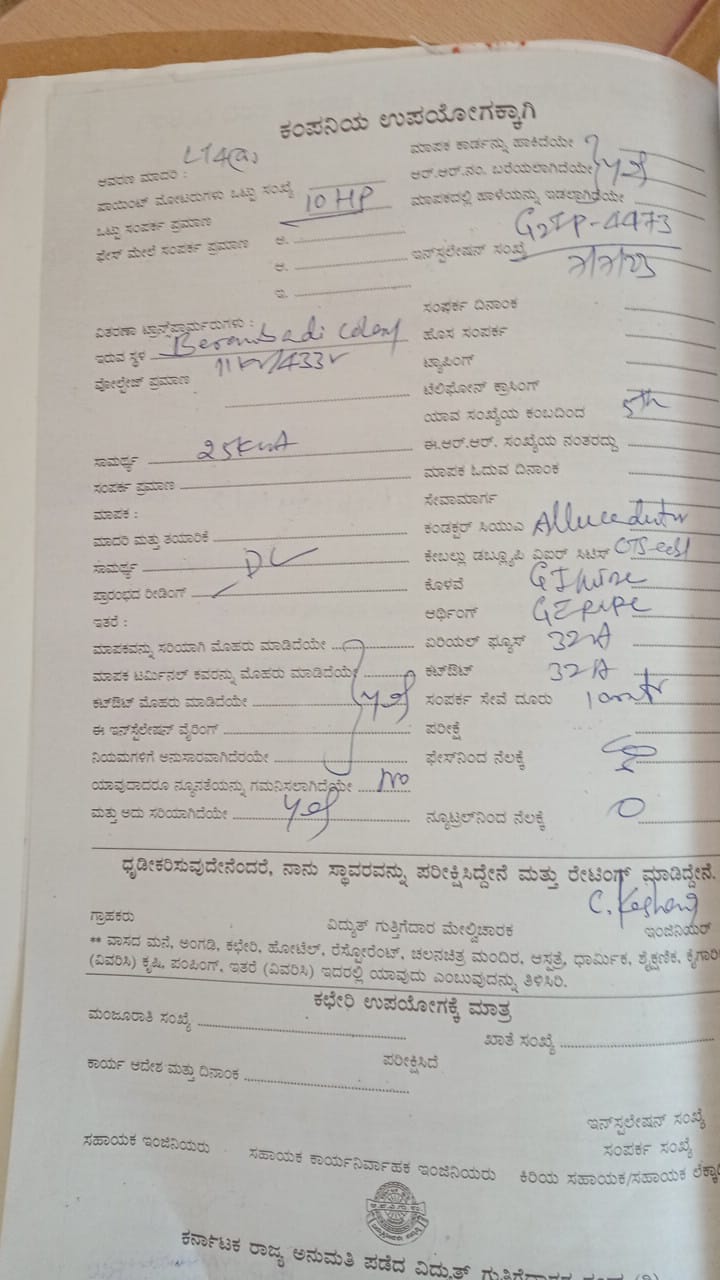 ಕಂಪನಿಯ ಉಪಯೋಗಕ್ಕಾಗಿ
ಆವರಣ ಮಾದರಿ : LT4(a)
ಮಾಪಕ ಕಾರ್ಡನ್ನು ಹಾಕಿದೆಯೇ
ಪಾಯಿಂಟ್ ಮೋಟರುಗಳು ಒಟ್ಟು ಸಂಖ್ಯೆ
ಆರ್.ಆರ್.ನಂ. ಬರೆಯಲಾಗಿದೆಯೇ yes
ಒಟ್ಟು ಸಂಪರ್ಕ ಪ್ರಮಾಣ 10 HP
ಮಾಪಕದಲ್ಲಿ ಹಾಳೆಯನ್ನು ಇಡಲಾಗಿದೆಯೇ
ಫೇಸ್ ಮೇಲೆ ಸಂಪರ್ಕ ಪ್ರಮಾಣ ಅ.
ಆ.
ಇ.
ಇನ್‌ಸ್ಟಲೇಷನ್ ಸಂಖ್ಯೆ 4473
7/7/23
ವಿತರಣಾ ಟ್ರಾನ್ಸ್‌ಫಾರ್ಮರುಗಳು :
ಸಂಪರ್ಕ ದಿನಾಂಕ
ಇರುವ ಸ್ಥಳ Berambadi colony
ಹೊಸ ಸಂಪರ್ಕ
ವೋಲ್ಟೇಜ್ ಪ್ರಮಾಣ 11kv/433v
ಟ್ಯಾಪಿಂಗ್
ಟೆಲಿಫೋನ್ ಕ್ರಾಸಿಂಗ್
ಯಾವ ಸಂಖ್ಯೆಯ ಕಂಬದಿಂದ 5th
ಸಾಮರ್ಥ್ಯ 25KVA
ಈ.ಆರ್.ಆರ್. ಸಂಖ್ಯೆಯ ನಂತರದ್ದು
ಸಂಪರ್ಕ ಪ್ರಮಾಣ
ಮಾಪಕ ಓದುವ ದಿನಾಂಕ
ಮಾಪಕ :
ಸೇವಾಮಾರ್ಗ
ಮಾದರಿ ಮತ್ತು ತಯಾರಿಕೆ
ಕಂಡಕ್ಟರ್ ಸಿಯುಎ
ಸಾಮರ್ಥ್ಯ DC
ಕೇಬಲ್ಲು ಡಬ್ಲ್ಯೂಪಿ ವಿಐಆರ್ ಸಿಟಿಸ್
ಪ್ರಾರಂಭದ ರೀಡಿಂಗ್
ಕೊಳವೆ GI wire
ಇತರೆ :
ಆರ್ಥಿಂಗ್ GI pipe
ಮಾಪಕವನ್ನು ಸರಿಯಾಗಿ ಮೊಹರು ಮಾಡಿದೆಯೇ
ಏರಿಯಲ್ ಫ್ಯೂಸ್ 32A
ಮಾಪಕ ಟರ್ಮಿನಲ್ ಕವರನ್ನು ಮೊಹರು ಮಾಡಿದೆಯೇ
ಕಟ್‌ಔಟ್ 32A
ಕಟ್‌ಔಟ್ ಮೊಹರು ಮಾಡಿದೆಯೇ yes
ಸಂಪರ್ಕ ಸೇವೆ ದೂರು 10mtr
ಈ ಇನ್‌ಸ್ಟಲೇಷನ್ ವೈರಿಂಗ್
ಪರೀಕ್ಷೆ
ನಿಯಮಗಳಿಗೆ ಅನುಸಾರವಾಗಿದೆರಯೇ
ಫೇಸ್‌ನಿಂದ ನೆಲಕ್ಕೆ
ಯಾವುದಾದರೂ ನ್ಯೂನತೆಯನ್ನು ಗಮನಿಸಲಾಗಿದೆಯೇ No
ಮತ್ತು ಅದು ಸರಿಯಾಗಿದೆಯೇ yes
ನ್ಯೂಟ್ರಲ್‌ನಿಂದ ನೆಲಕ್ಕೆ 0
ಧೃಡೀಕರಿಸುವುದೇನೆಂದರೆ, ನಾನು ಸ್ಥಾವರವನ್ನು ಪರೀಕ್ಷಿಸಿದ್ದೇನೆ ಮತ್ತು ರೇಟಿಂಗ್ ಮಾಡಿದ್ದೇನೆ.
ಗ್ರಾಹಕರು ವಿದ್ಯುತ್ ಗುತ್ತಿಗೆದಾರ ಮೇಲ್ವಿಚಾರಕ ಇಂಜಿನಿಯರ್
** ವಾಸದ ಮನೆ, ಅಂಗಡಿ, ಕಛೇರಿ, ಹೋಟೆಲ್, ರೆಸ್ಟೋರೆಂಟ್, ಚಲನಚಿತ್ರ ಮಂದಿರ, ಆಸ್ಪತ್ರೆ, ಧಾರ್ಮಿಕ, ಶೈಕ್ಷಣಿಕ, ಕೈಗಾರಿ
(ವಿವರಿಸಿ) ಕೃಷಿ, ಪಂಪಿಂಗ್, ಇತರೆ (ವಿವರಿಸಿ) ಇದರಲ್ಲಿ ಯಾವುದು ಎಂಬುವುದನ್ನು ತಿಳಿಸಿರಿ.
ಕಛೇರಿ ಉಪಯೋಗಕ್ಕೆ ಮಾತ್ರ
ಮಂಜೂರಾತಿ ಸಂಖ್ಯೆ
ಖಾತೆ ಸಂಖ್ಯೆ
ಕಾರ್ಯ ಆದೇಶ ಮತ್ತು ದಿನಾಂಕ
ಪರೀಕ್ಷಿಸಿದೆ
ಇನ್‌ಸ್ಟಲೇಷನ್ ಸಂಖ್ಯೆ
ಸಂಪರ್ಕ ಸಂಖ್ಯೆ
ಸಹಾಯಕ ಇಂಜಿನಿಯರು ಸಹಾಯಕ ಕಾರ್ಯನಿರ್ವಾಹಕ ಇಂಜಿನಿಯರು ಕಿರಿಯ ಸಹಾಯಕ/ಸಹಾಯಕ ಲೆಕ್ಕಾ
ಕರ್ನಾಟಕ ರಾಜ್ಯ ಅನುಮತಿ ಪಡೆದ ವಿದ್ಯುತ್